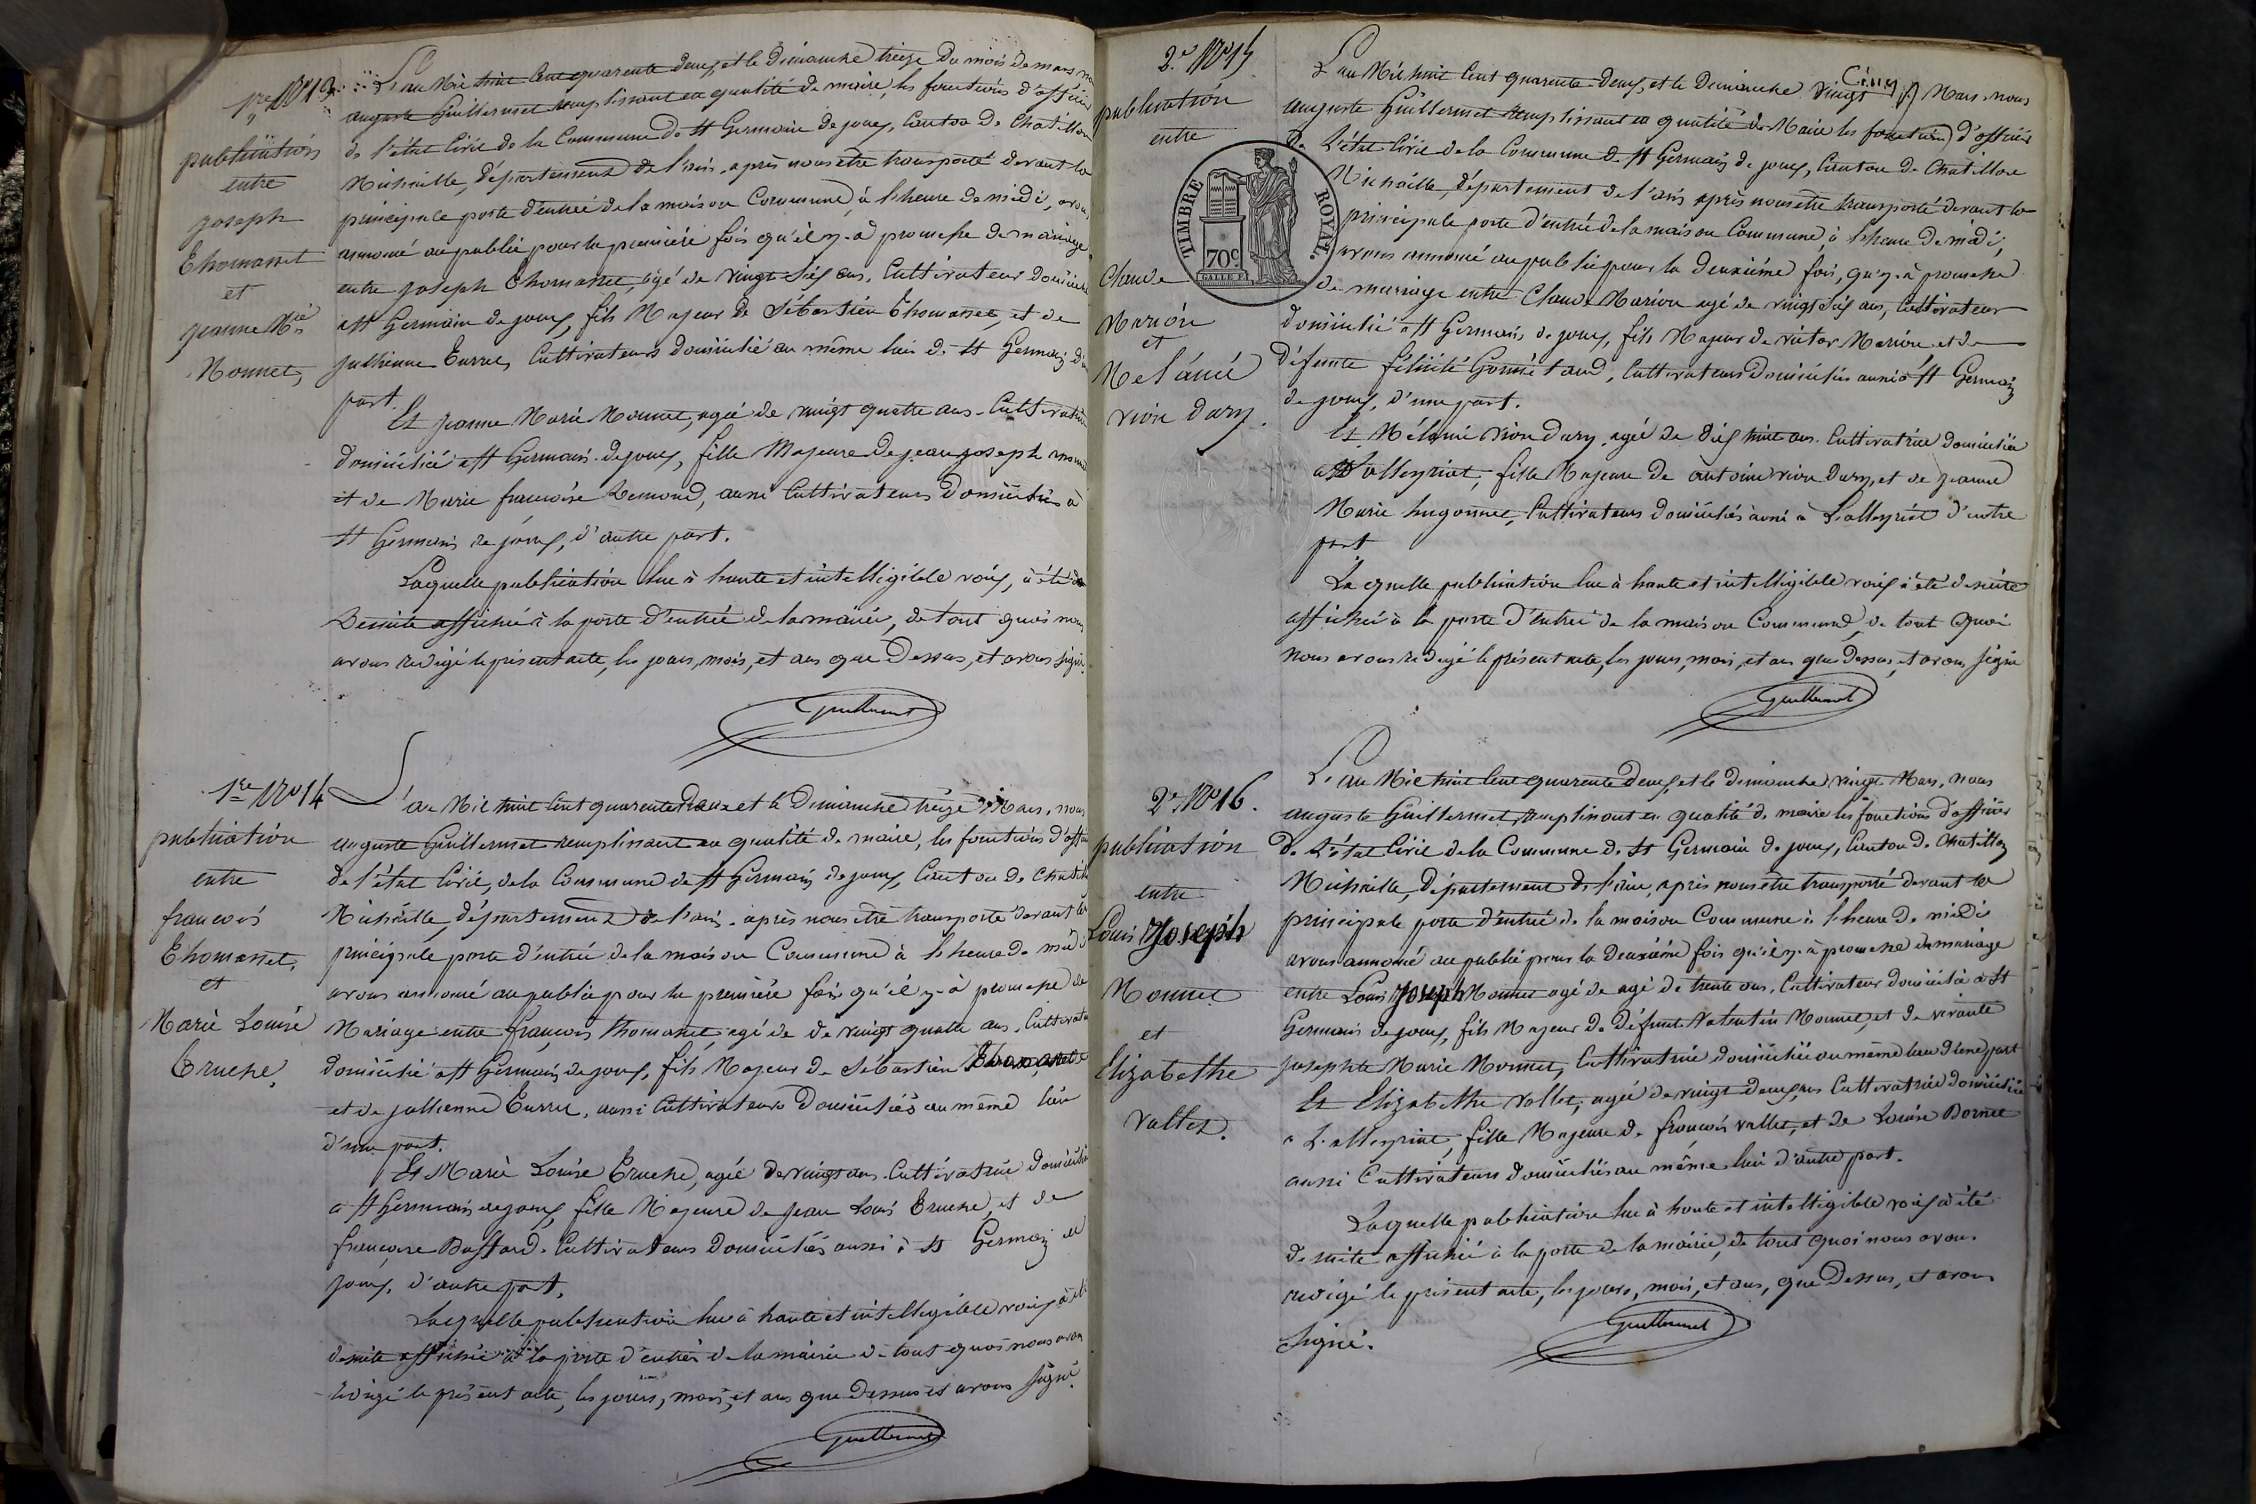 1re No 13
publication
entre
joseph
Thomasset
et
jeanne Mie
Monnet,
L'an Mil huit Cent quarante deux, et le Dimanche treize du mois de mars
auguste Guillermet remplissant en qualité de maire, les fonctions d'officier
de l'état Civil de la Commune de St Germain de joux, Canton de Chatillon
Michaille, département de l'ain, après nous être transporté devant la
principale porte d'entrée de la maison Commune, à l'heure de midi, avons
annoncé au public pour la première fois qu'il y a promesse de mariage
entre joseph Thomasset, agé de vingt six ans, Cultivateur domicilié
a St Germain de joux, fils Majeur de Sébastien Thomasset, et de
jullienne Burret, Cultivateurs domicilié au même lieu de St Germain d'une
part.
Et jeanne Marie Monnet, agée de vingt quatre ans, Cultivatrice
domiciliée a St Germain de joux, fille Majeure de jean joseph
et de Marie francoise Demond, aussi Cultivateurs domiciliés à
St Germain de joux, d'autre part.
Laquelle publication lue à haute et intelligible voix, à été
De suite affichée à la porte d'entrée de la mairie, de tout quoi nous
avons redigé le présent acte, les jours, mois, et ans que Dessus, et avons signé.
Guillermet
1re No 14
publication
entre
francois
Thomasset,
et
Marie Louise
Truche,
L'an Mil huit Cent quarante Deux et le Dimanche treize Mars, nous
auguste Guillermet remplissant en qualité de maire, les fonctions d'officier
de l'état Civil, de la Commune de St Germain de joux, Canton de Chatillon
Michaille, département de l'ain, après nous être transporté devant la
principale porte d'entrée de la maison Commune à l'heure de midi
avons annoncé au public pour la première fois qu'il y a promesse de
Mariage entre françois Thomasset, agé de de vingt quatre ans, Cultivateur
domicilié a St Germain de joux, fils Majeur de Sébastien Thomasset
et de jullienne Burret, aussi Cultivateurs Domiciliés au même lieu
d'une part.
Et Marie Louise Truche, agée de vingt ans, Cultivatrice domiciliée
a St Germain de joux, fille Majeure de jean Louis Truche, et de
françoise Buffard, Cultivateurs domiciliés aussi à St Germain de
joux, d'autre part,
Laquelle publication lue à haute et intelligible voix à été
de suite affichée à la porte d'entrée de la mairie de tout quoi nous avons
redigé le présent acte, les jours, mois, et ans que dessus et avons signé.
Guillermet
2e No 15
publication
entre
Claude
Marion
et
Mélanie
vion dury.
TIMBRE ROYAL.
70c.
L'an Mil huit Cent quarante-Deux, et le Dimanche vingt Mars, nous
auguste Guillermet remplissant en qualité de Maire les fonctions d'officier
de L'état Civil de la Commune de St Germain de joux, Canton de Chatillon
Michaille, département de l'ain après nous être transporté devant la
principale porte d'entrée de la maison Commune, à l'heure de midi,
avons annoncé au public pour la deuxième fois, qu'y a promesse
de mariage entre Claude Marion agé de vingt six ans, Cultivateur
domicilié a St Germain de joux, fils Majeur de victor Marion et de
défunte félicité, Cultivateurs Domiciliés aussi à St Germain
de joux, d'une part.
Et Mélanie vion dury, agée de dix huit ans, Cultivatrice domiciliée
a Lalleyriat, fille Majeure de antoine vion dury, et de jeanne
Marie hugonnet, Cultivateurs domiciliés aussi a Lalleyriat d'autre
part
La quelle publication lue à haute et intelligible voix à été de suite
affichée à la porte d'entrée de la maison Commune, de tout quoi
nous avons redigé le présent acte, les jours, mois, et an que dessus, et avons signé
Guillermet
2e No 16.
publication
entre
Louis Joseph
Monnet
et
Elizabethe
vallet.
L'an Mil huit Cent quarante deux, et le dimanche vingt Mars, nous
auguste Guillermet, remplissant en qualité de maire les fonctions d'officier
de L'état Civil de la Commune de St Germain de joux, Canton de Chatillon
Michaille, département de l'ain, après nous être transporté devant la
principale porte d'entrée de la maison Commune à l'heure de midi
avons annoncé au public pour la deuxième fois qu'il y a promesse de mariage
entre Louis Joseph Monnet agé de agé de trente ans, Cultivateur domicilié a St
Germain de joux, fils Majeur de défunt valentin Monnet, et de vivante
josephte Marie Monnet, Cultivatrice domiciliée au même lieu d'une part
Et Elizabethe vallet, agée de vingt deux ans Cultivatrice domiciliée
a Lalleyriat, fille Majeure de françois vallet, et de Louise Bornet
aussi Cultivateurs domiciliés au même lieu d'autre part.
Laquelle publication lue à haute et intelligible voix à été
de suite affichée à la porte de la mairie, de tout quoi nous avons
redigé le présent acte, les jours, mois, et ans, que Dessus, et avons
signé.
Guillermet